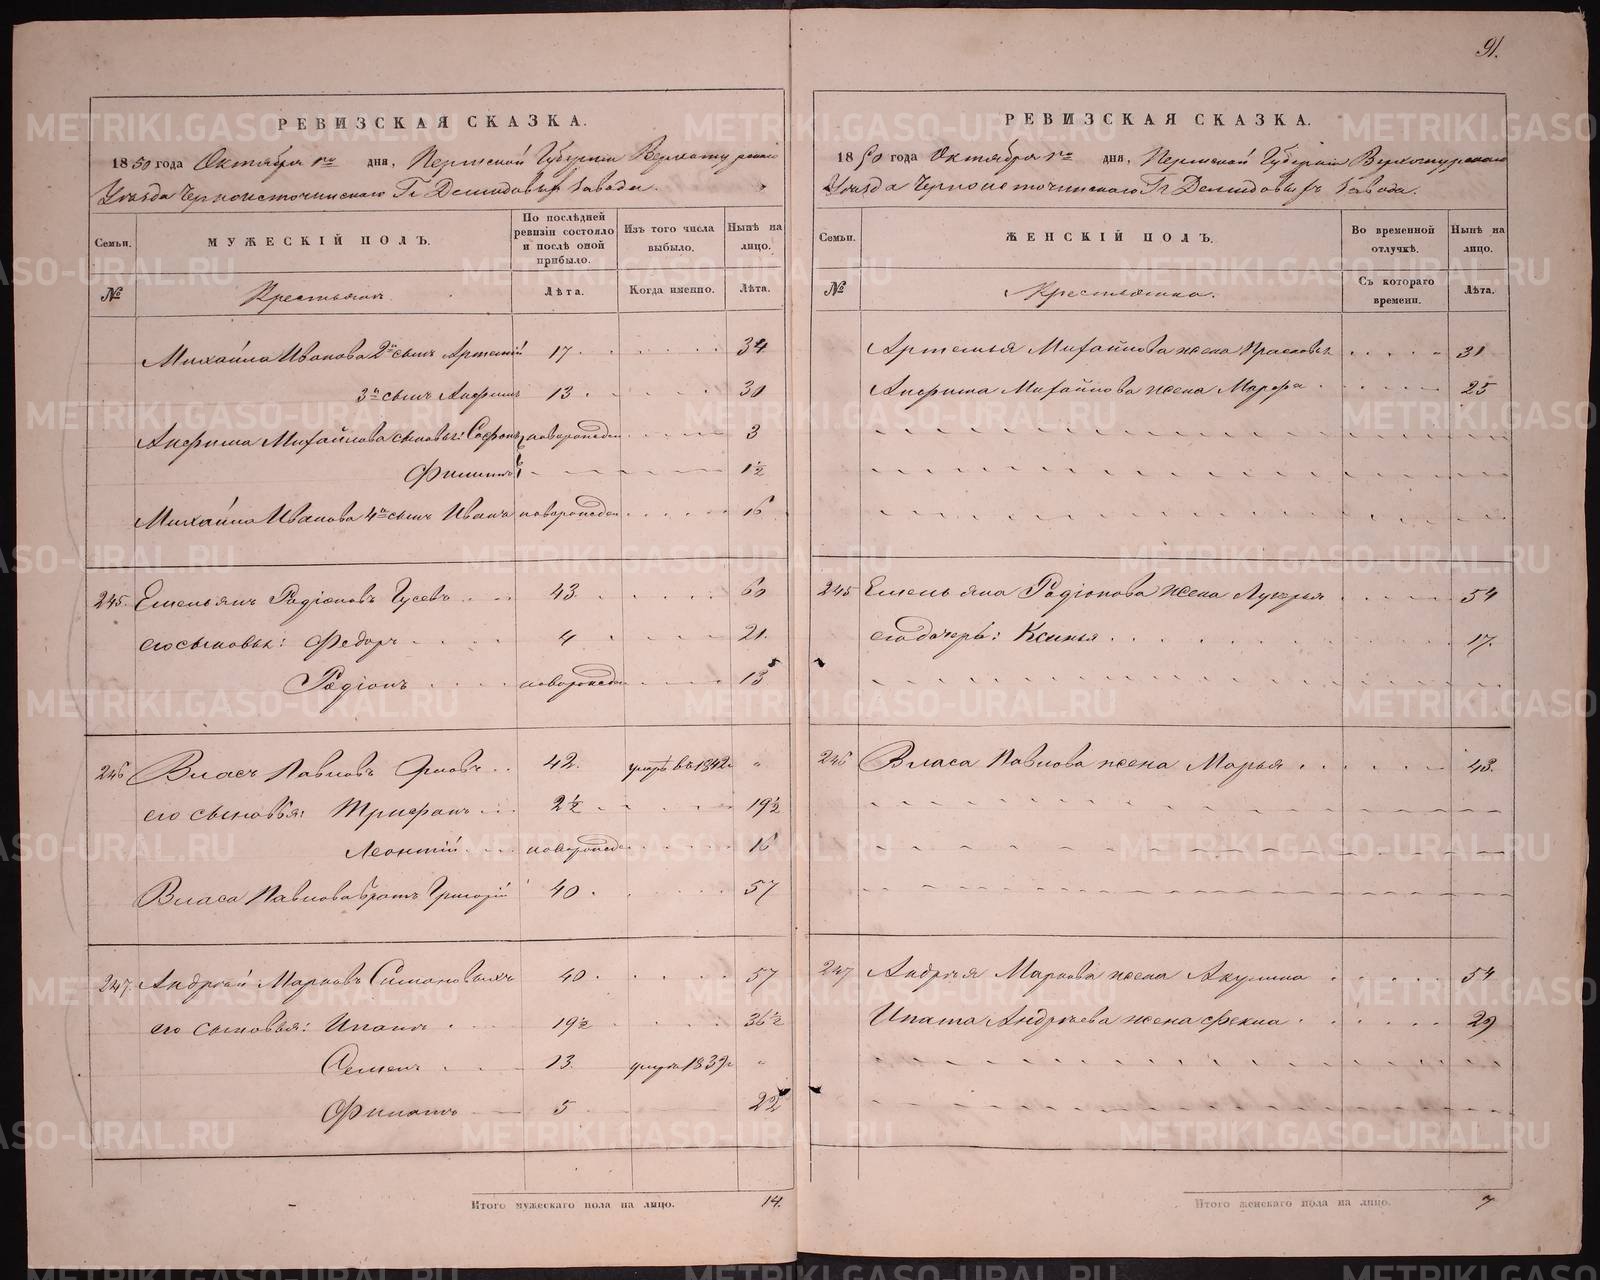 91.
РЕВИЗСКАЯ СКАЗКА.
1850 года Октября 1го дня, Пермской Губернии Верхотурскаго
Уѣзда Черноисточинскаго Гг Демидовыхъ завода.
Семьи. МУЖЕСКІЙ ПОЛЪ. По послѣдней ревизіи состояло и послѣ оной прибыло. Изъ того числа выбыло. Нынѣ на лицо.
№ Крестьяне. Лѣта. Когда именно. Лѣта.
Михайла Иванова 2й сынъ Артемій 17 34
3й сынъ Анфимъ 13 30
Анфима Михайлова сыновья: новорожден 3
Филиппъ 1½
Михайла Иванова 4й сынъ Иванъ новорожден 16
245. Емельянъ Радіоновъ Гусевъ 43. 60
его сыновья: Федоръ 4 21.
Радіонъ новорожден 15
246 Власъ Павловъ 42. умеръ въ 1842г "
его сыновья: Трифонъ 2½ 19½
Леонтій новорожде 16
Власа Павлова братъ Григорій 40 57
247. Андрей Марковъ Симановыхъ 40 57
его сыновья: Ипатъ 19½ 36½
Семенъ 13 умеръ 1839г "
Филатъ 5 22
Итого мужескаго пола на лицо. 14.
РЕВИЗСКАЯ СКАЗКА.
1850 года Октября 1го дня, Пермской Губерніи Верхотурскаго
Уѣзда Черноисточинскаго Гг Демидовыхъ завода.
Семьи. ЖЕНСКІЙ ПОЛЪ. Во временной отлучкѣ. Нынѣ на лицо.
№ Крестьянка. Съ котораго времени. Лѣта.
Артемья Михайлова жена Прасковья 31
Анфима Михайлова жена Марфа 25
245 Емельяна Радіонова жена Лукерья 54
его дочерь: Ксинья 17.
246 Власа Павлова жена Марья 43.
247 Андрея Маркова жена Акулина 54
Ипата Андреева жена Фекла 29
Итого женскаго пола на лицо. 7
METRIKI.GASO-URAL.RU